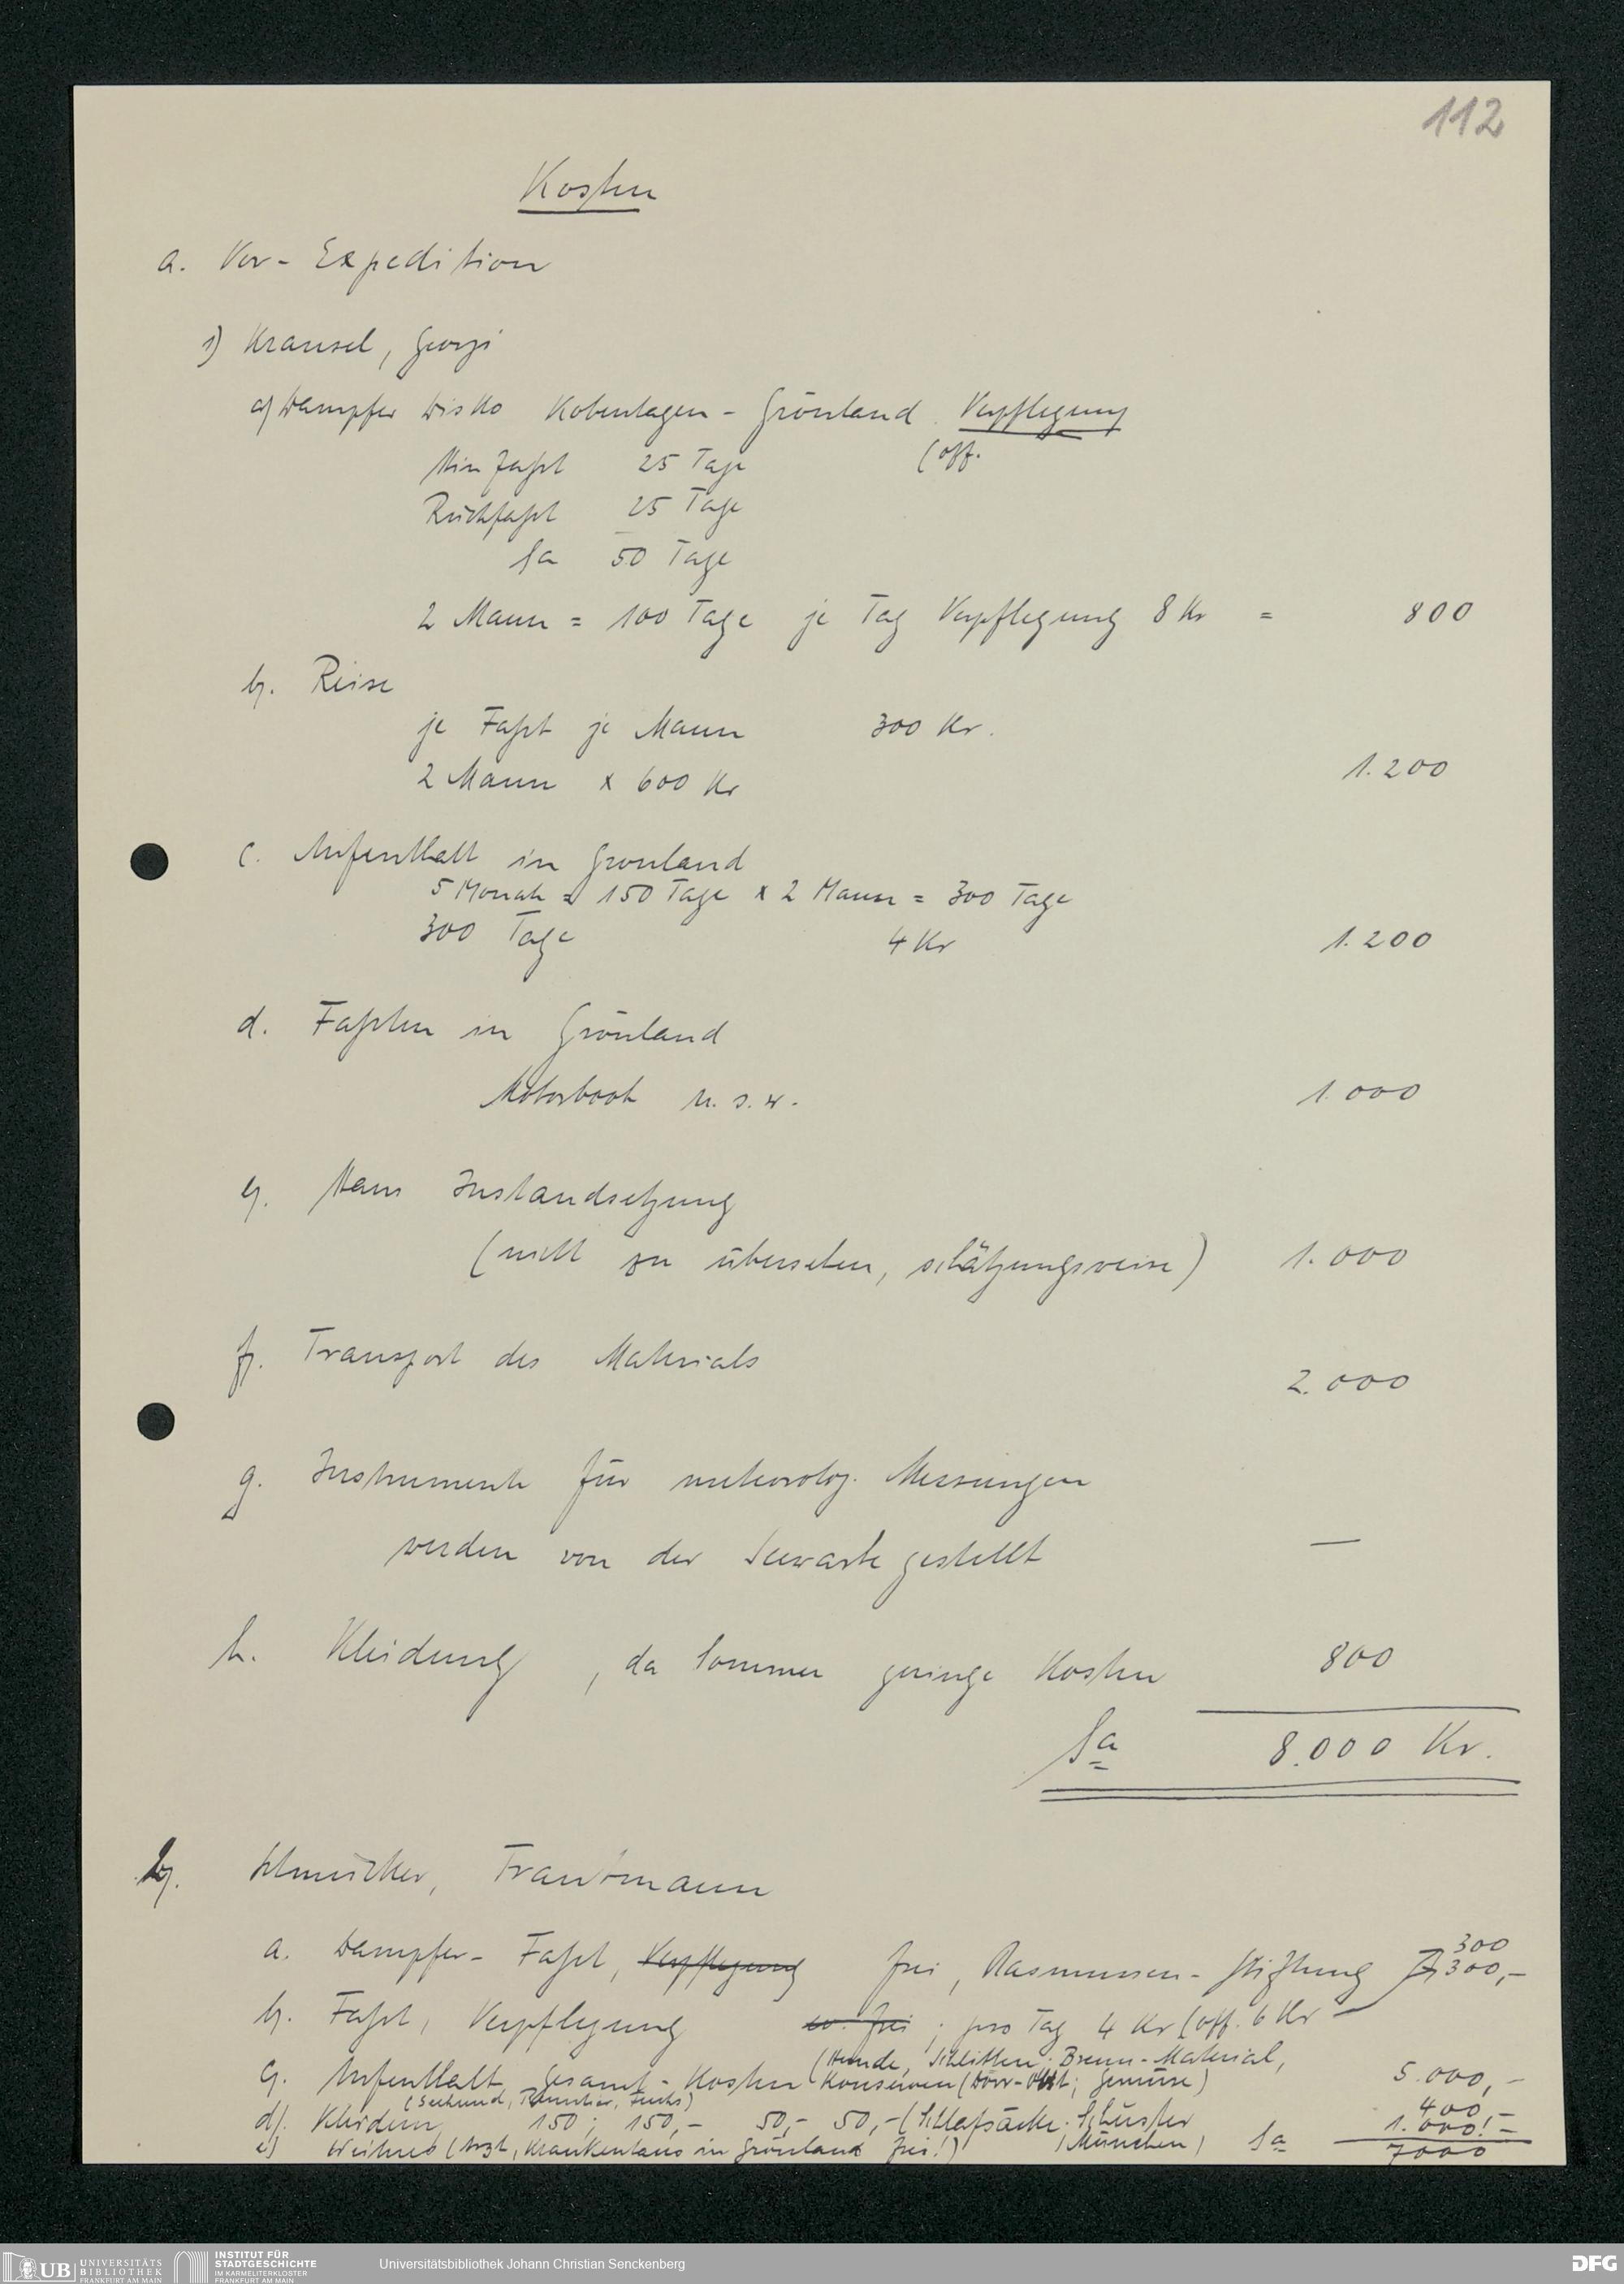 112
Kosten
a. Vor-Expedition
1) Krausel, Georgi
a) Dampfer Disko Kobenhagen - Grönland. Verpflegung
Hinfahrt 25 Tage (off.
Rückfahrt 25 Tage
Sa 50 Tage
2 Mann = 100 Tage je Tag Verpflegung 8 Kr = 800
b. Reise
je Fahrt je Mann 300 Kr.
2 Mann x 600 Kr 1.200
c. Aufenthalt in Gronland
5 Monate = 150 Tage x 2 Mann = 300 Tage
300 Tage 4 Kr 1.200
d. Fahrten in Grönland
Motorboot u.s.w. 1.000
e. Haus Instandsetzung
(nicht zu übersehen, schätzungsweise) 1.000
f. Transport des Materials 2.000
g. Instrumente für meteorolog. Messungen
werden von der Seewarte gestellt —
h. Kleidung, da Sommer geringe Kosten 800
Sa 8.000 Kr.
b. Schmücker, Trautmann
300
a. Dampfer-Fahrt, Verpflegung frei, Rasmussen-Stiftung 300,-
b. Fahrt, Verpflegung frei; pro Tag 4 Kr (off. 6 Kr
(Hunde, Schlitten; Brenn-Material,
c. Aufenthalt Gesamt-Kosten Konserven (Dörr-Obst; Gemüse) 5.000,-
(Seehund, Fuchs)
d). Kleidung 150; 150,- 50,- 50,- (Schlafsäcke: Schuster 400,-
1.000!-
e) Weiteres (Arzt, Krankenhaus in Grönland frei!) (München) Sa 7000
UB UNIVERSITÄTS
BIBLIOTHEK
FRANKFURT AM MAIN
INSTITUT FÜR
STADTGESCHICHTE
IM KARMELITERKLOSTER
FRANKFURT AM MAIN
Universitätsbibliothek Johann Christian Senckenberg
DFG